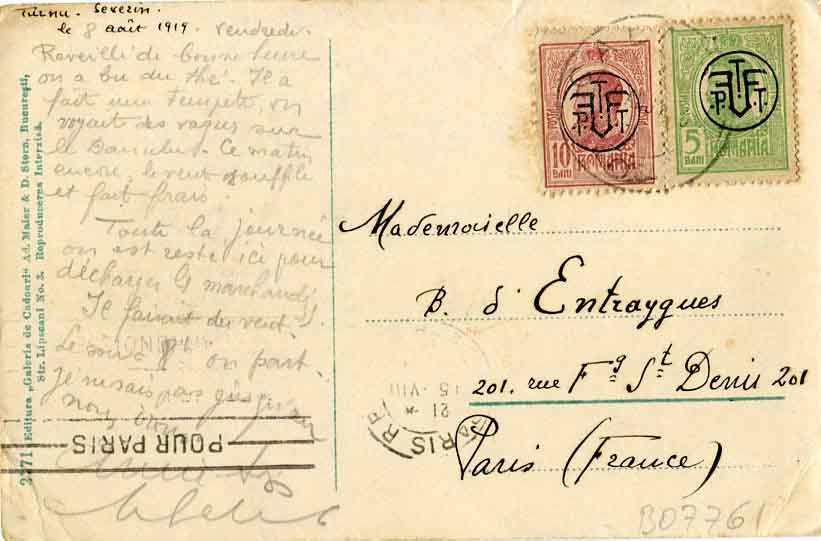 Turnu. Severin.
le 8 août 1919. Vendredi.
Reveillé de bonne heure
on a bu du thé. Il a
fait une tempete, on
voyait des vagues sur
le Danube. Ce matin
encore, le vent souffle
et fait frais.
Toute la journée
on est resté ici pour
décharger les marchandises.
Il faisait du vent.
Le soir on part.
Je ne sais pas
nous
2271 Editura „Galeria de Cadouri“ Ad. Maier & D. Stern, Bucureşti,
Str. Lipscani No. 3. Reproducerea Interzisă.
10 BANI
ROMANIA
5 BANI
ROMANIA
P.T.T.
P.T.T.
Mademoiselle
B. d'Entraygues
201. rue Fg St Denis 201
Paris (France)
POUR PARIS
PARIS R.P.
21
15 · VIII
B0776